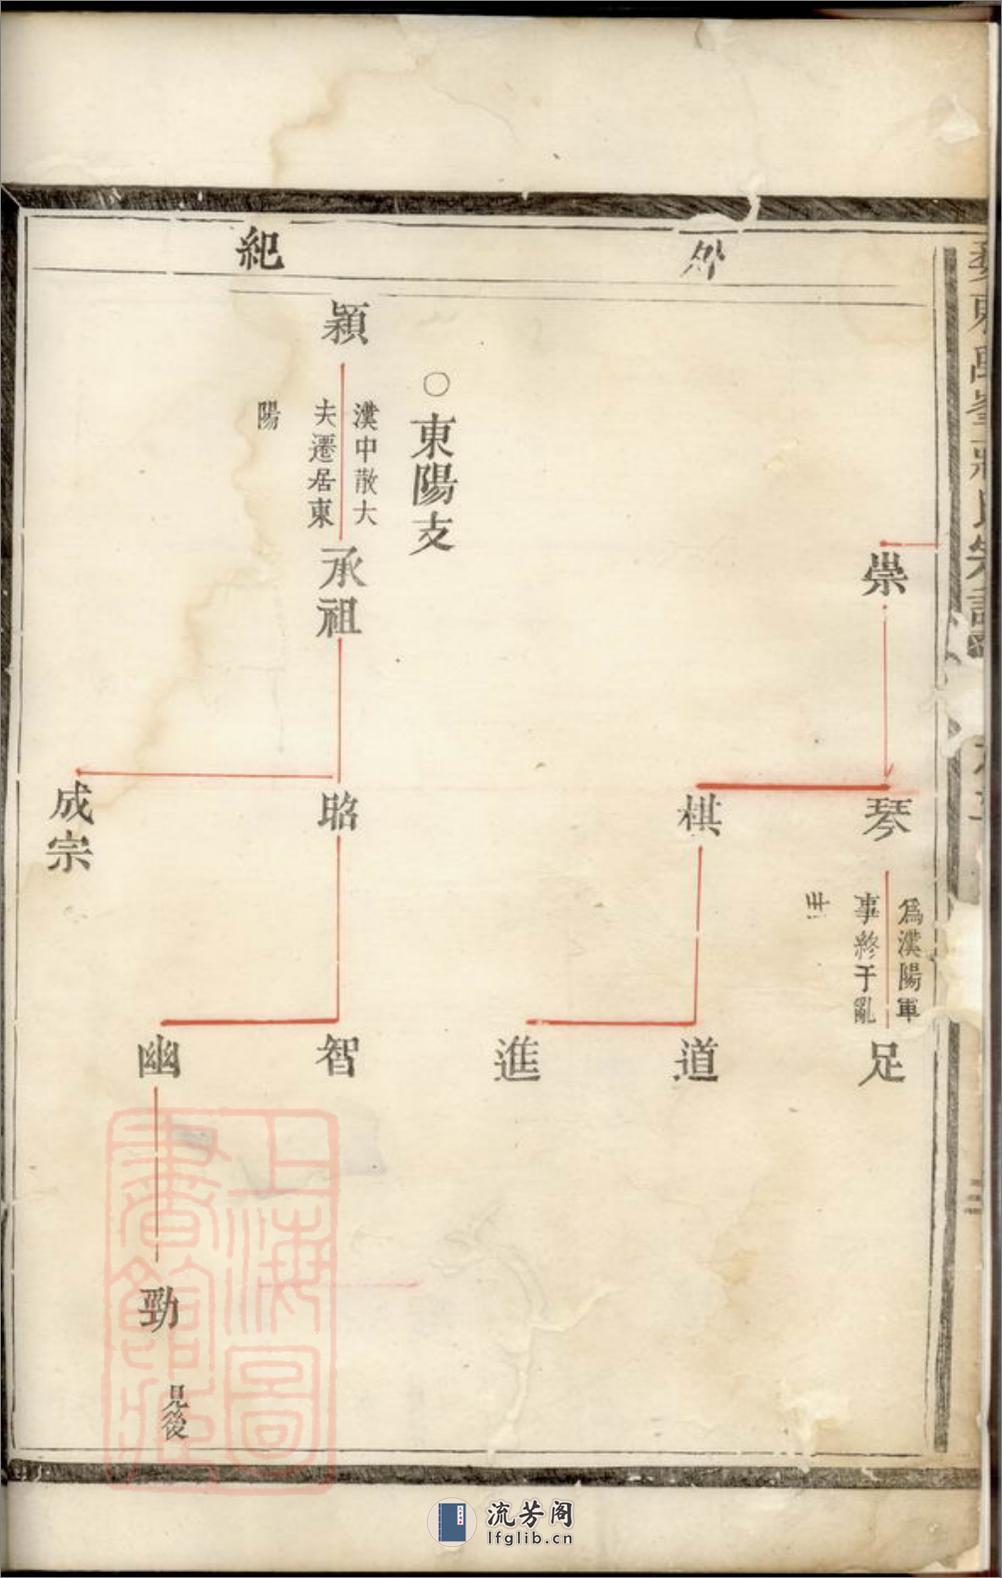 外
紀
崇
琴
為漢陽軍
事終于亂
世
足
棋
道
進
○東陽支
穎
漢中散大
夫遷居東
陽
承祖
昭
智
成宗
幽
勁
見後
上海圖
書館藏
流芳阁
lfglib.cn